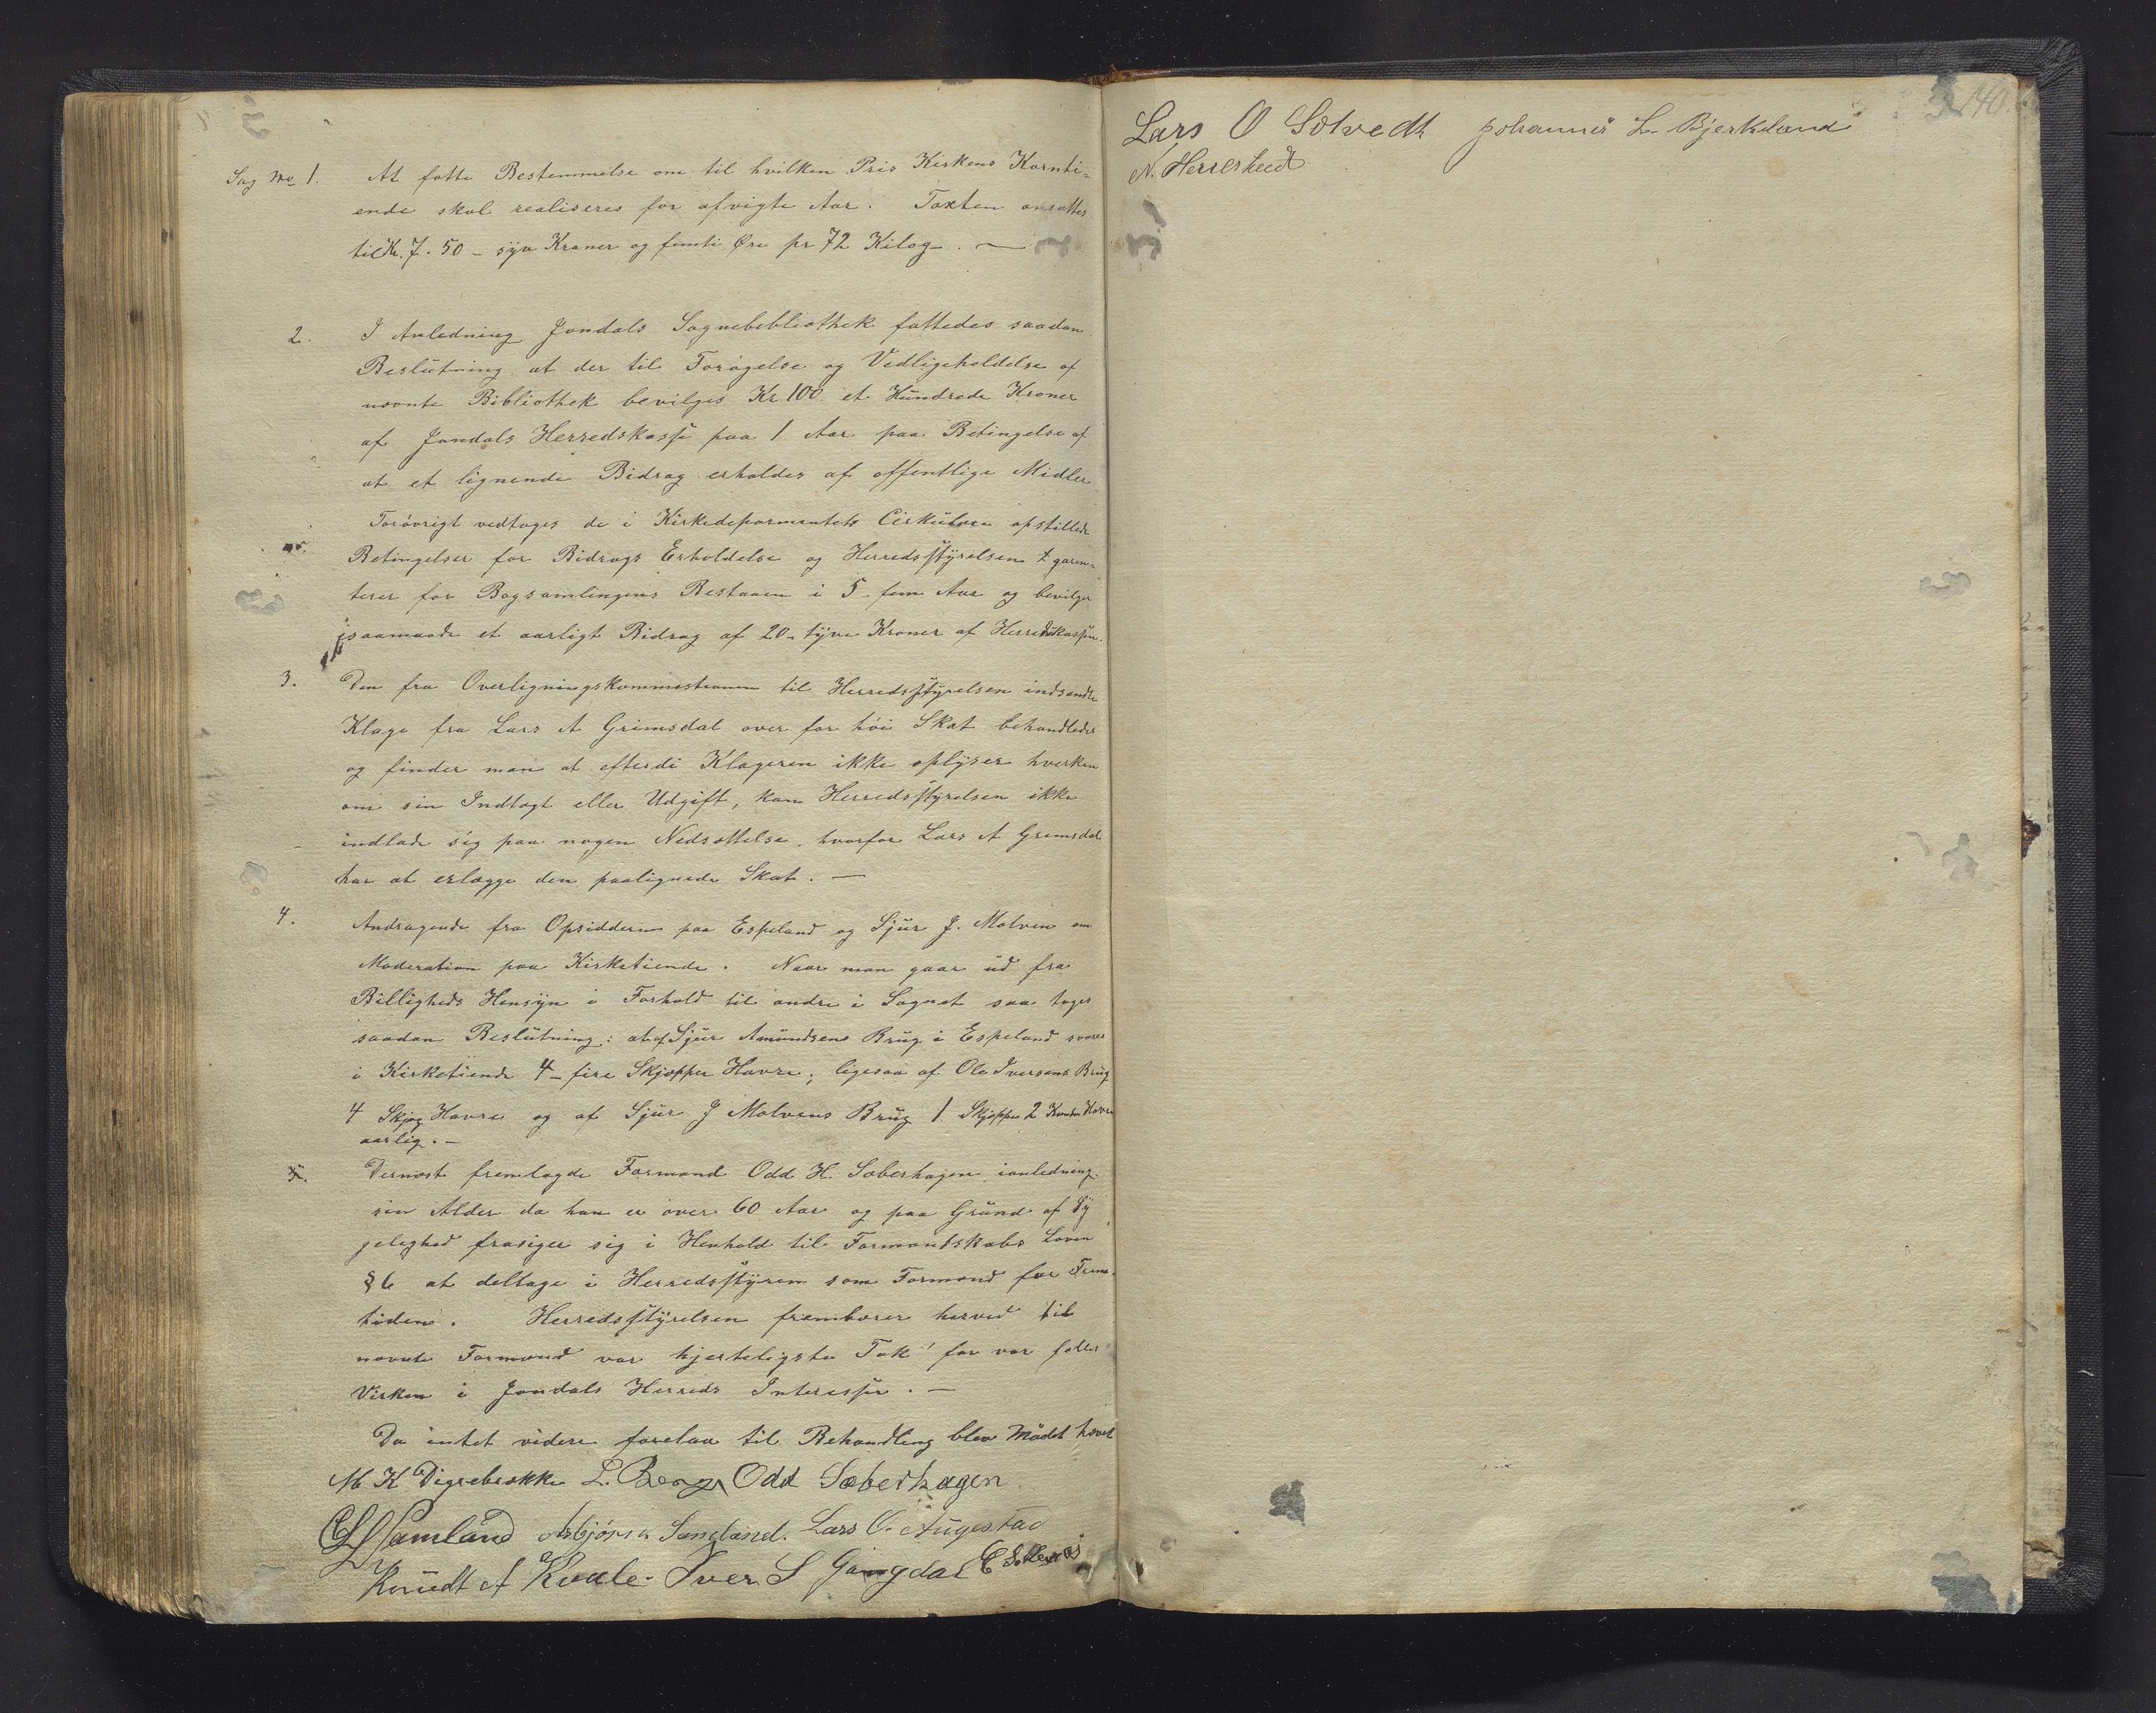 Sag No 1. At fatte Bestemmelse om til hvilken Pris Kirkens Kornti-
ende skal realiseres for afvigte Aar. Taxten ansattes
til Kr. 7.50 - syv Kroner og femti Øre pr 72 Kilog. —
2. I Anledning Jondals Sognebibliothek fattedes saadan
Beslutning at der til Forøgelse og Vedligeholdelse af
nævnte Bibliothek bevilges Kr 100 et Hundrede Kroner
af Jondals Herredskasse paa 1 Aar paa Betingelse af
at et lignende Bidrag erholdes af offentlige Midler
Forøvrigt vedtoges de i Kirkedeparmentets Cirkulære opstillede
Betingelser for Bidrags Erholdelse og Herredsstyrelsen garen-
terer for Bogsamlingens Bestaaen i 5 - fem Aar og bevilger
isaamaade et aarligt Bidrag af 20 - tyve Kroner af Herredskassen.
3. Den fra Overligningskommissionen til Herredsstyrelsen indsendte
Klage fra Lars A Grimsdal over for høi Skat behandledes
og finder man at efterdi Klageren ikke oplyser hverken
om sin Indtægt eller Udgift, kan Herredsstyrelsen ikke
indlade sig paa nogen Nedsættelse, hvorfor Lars A Grimsdal
har at erlægge den paalignede Skat. —
4. Andragende fra Opsidderne paa Espeland og Sjur J. Molven om
Moderation paa Kirketiende. Naar man gaar ud fra
Billigheds Hensyn i Forhold til andre i Sognet saa toges
saadan Beslutning: at af Sjur Amundsens Brug i Espeland svares
i Kirketiende 4 - fire Skjæpper Havre, ligesaa af Ole Iversens Brug
4 Skjæp Havre og af Sjur J Molvens Brug 1 Skjæppe 2 Kander Havre
aarlig. —
5. Dernæst fremlagde Formand Odd H. Sæberhagen ianledning
sin Alder da han er over 60 Aar og paa Grund af Sy
gelighed frasiger sig i Henhold til Formandskabs Loven
§ 6 at deltage i Herredsstyren som Formand for Frem-
tiden. Herredsstyrelsen frembærer herved til
nævnte Formand vor hjerteligste Tak for vor fælles
Virken i Jondals Herreds Interesser. —
Da intet videre forelaa til Behandling blev Mødet hævet
M K Digrebrekke L. Berge Odd Sæberhagen
Samland Asbjørn Samland. Lars O. Augestad
Knudt A Kvale. Iver S Gangdal E Sollesnes
Lars O Solvedt Johannes L. Bjerkeland
N. Herresheed
140